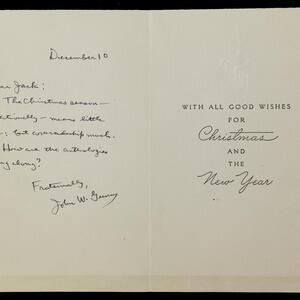 December 10
ar Jack:
The Christmas season—
tionally — means little
; but comradeship much.
How are the anthologies
ng along?
Fraternally,
John W.
WITH ALL GOOD WISHES
FOR
Christmas
AND
THE
New Year